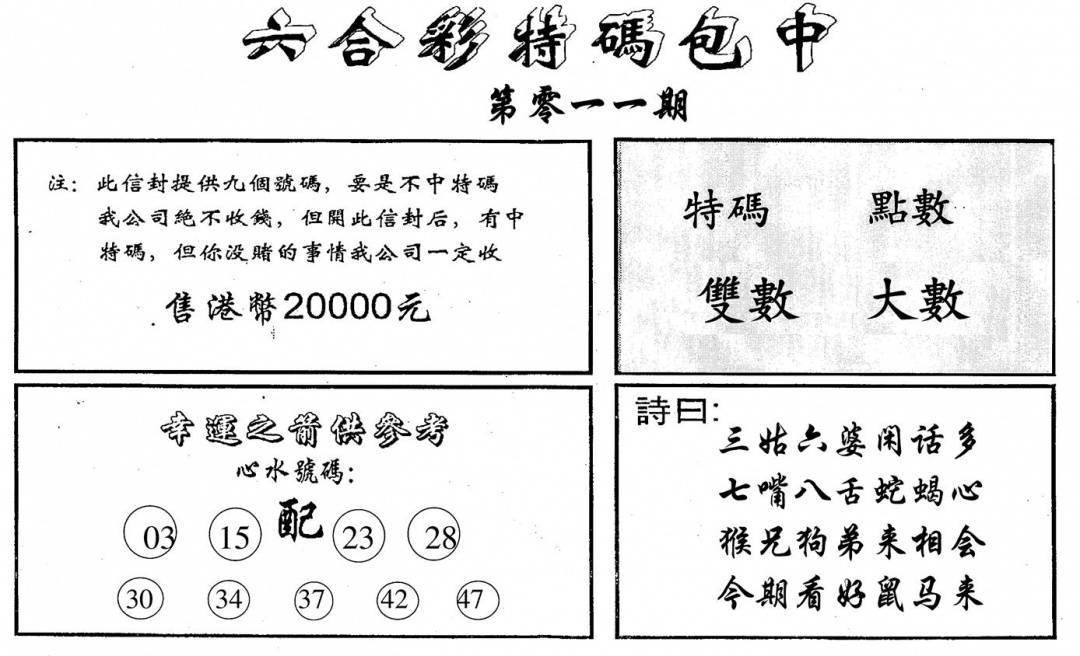 六合彩特碼包中
第零一一期
注：此信封提供九個號碼，要是不中特碼
我公司絕不收錢，但開此信封后，有中
特碼，但你没賭的事情我公司一定收
售港幣20000元
特碼 點數
雙數 大數
幸運之箭供參考
心水號碼：
03 15 配 23 28
30 34 37 42 47
詩曰：
三姑六婆闲话多
七嘴八舌蛇蝎心
猴兄狗弟来相会
今期看好鼠马来